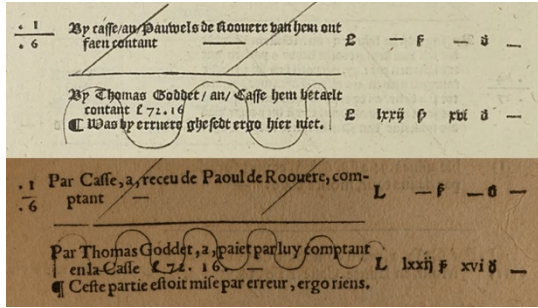 . 1
. 6
By casse/an/Pauwels de Roovere van hem ont
faen contant — £ — ß — ð —
By Thomas Goddet/an/Casse hem betaelt
contant £ 72.16 £ lxxij ß xvi ð —
¶ Was by erruere ghesedt ergo hier niet.
. 1
. 6
Par Casse, a, receu de Paoul de Roovere, com-
ptant — L — ß — ð —
Par Thomas Goddet, a, paiet par luy comptant
en la Casse £ 72. 16. — L lxxij ß xvi ð —
¶ Ceste partie estoit mise par erreur, ergo riens.